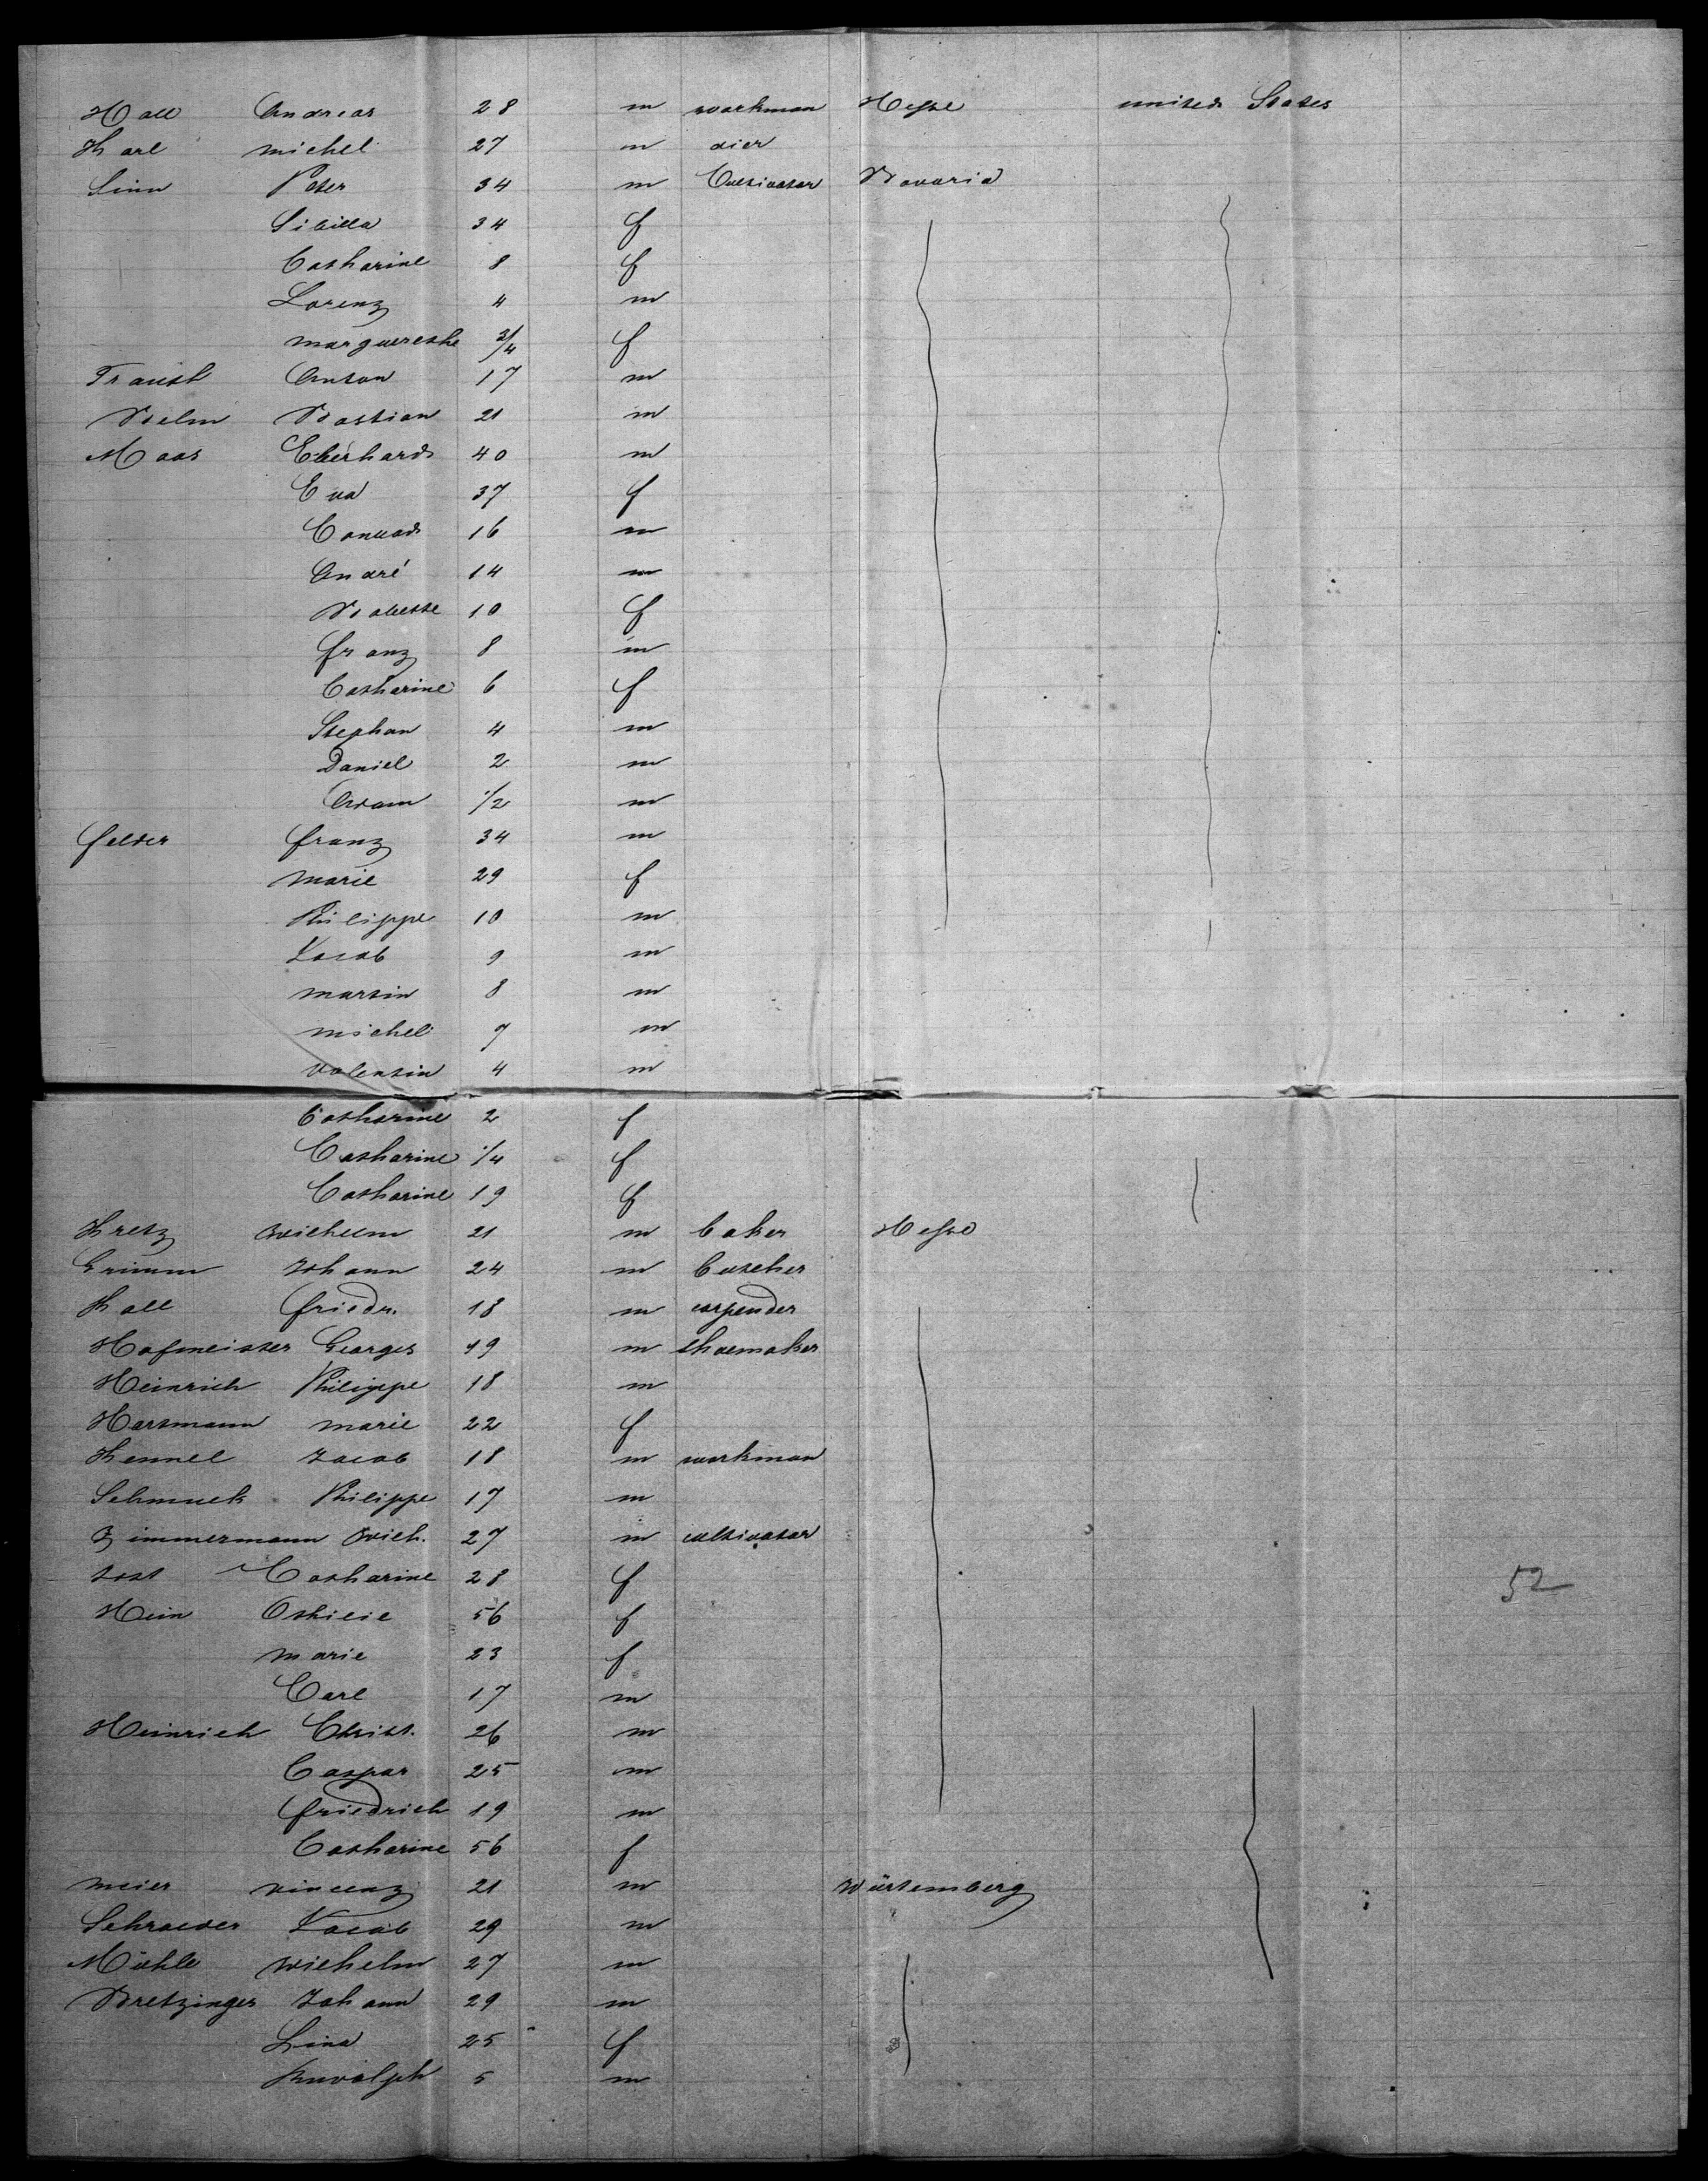 Hall Andreas 28 m workman Hesse united States
Karl michel 27 m dier
Sinn Peter 34 m Cultivator Bavaria
Sibilla 34 f
Catharine 8 f
Lorenz 4 m
marguerethe 3/4 f
Anton 17 m
Bastian 21 m
Maas Eberhard 40 m
Eva 37 f
Conrad 16 m
André 14 m
Babette 10 f
franz 8 m
Catharine 6 f
Stephan 4 m
Daniel 2 m
Adam 1/2 m
felder franz 34 m
marie 29 f
Philippe 10 m
Jacob 9 m
martin 8 m
michel 7 m
valentin 4 m
Catharine 2 f
Catharine 1/4 f
Catharine 19 f
Kretz wilhelm 21 m baker Hesse
Grimm Johann 24 m butcher
Kall friedr. 18 m carpender
Hofmeister Georges 19 m shoemaker
Heinrich Philippe 18 m
Hartmann marie 22 f
Kennel Jacob 18 m workman
Schmuck Philippe 17 m
Zimmermann wilh. 27 m cultivator
Jost Catharine 28 f 52
Hein Othilie 56 f
marie 23 f
Carl 17 m
Heinrich Christ. 26 m
Caspar 25 m
friedrich 19 m
Catharine 56 f
meier vincenz 21 m Würtemberg
Schraeder Jacob 29 m
Mühle wilhelm 27 m
Bretzinger Johann 29 m
Lina 25 f
Rudolph 5 m